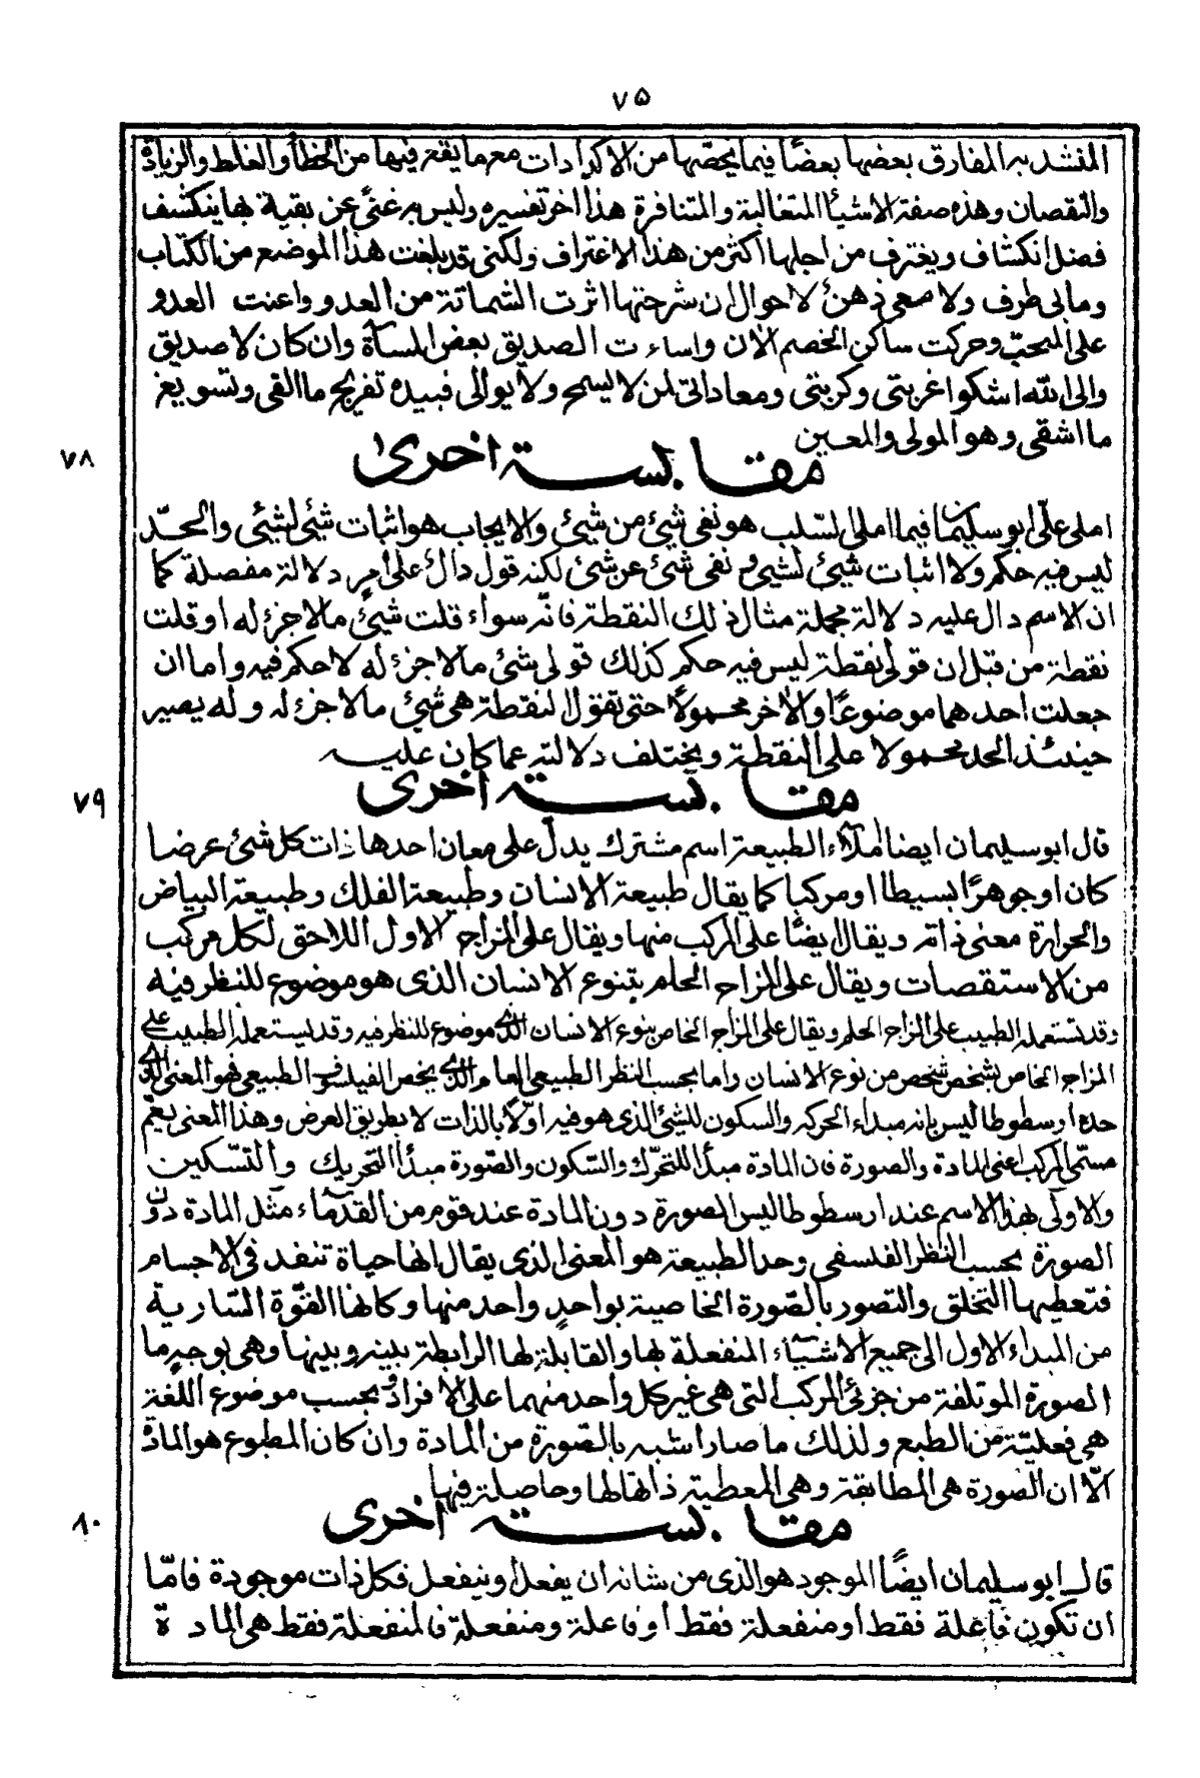 ٧٥
المتشبه المفارق بعضها بعضًا فيما يخصّها من الاكدادات مع ما يقع فيها من الخطأ والغلط والزيادة
والنقصان وهذه صفة الاشيأ المتغالبة والمتنافرة هذا اخر تفسيره وليس به غنىً عن بقية بها ينكشف
فضل انكشاف ويغترف من اجلها اكثر من هذا الاغتراف ولكنى قد بلغت هذا الموضع من الكتاب
ومابى طرف ولا معى ذهن لاحوال ان شرحتها اثرت الشماتة من العدو واعنت العدو
على المحبّ وحركت ساكن الخصم الان واساءت الصديق بعض المسآة وان كان لا صديق
والى الله اشكوا غربتى وكربتى ومعاداتى لمن لا يسمح ولا يوالى فبيده تفريج ما القى وتسويغ
ما اشقى وهو المولى والمعين
٧٨
مقابسة اخرى
املى علّى ابو سليمان فيما املى السّلب هو نفى شيئ من شيئ والايجاب هو اثبات شئى لشيئى والحدّ
ليس فيه حكم ولا اثبات شيئ لشيئ ولا نفى شئ عن شئ لكنه قول دالّ على امرٍ دلالة مفصلة كما
ان الاسم دال عليه دلالة مجملة مثال ذلك النقطة فانّه سواء قلت شيئ مالا جزء له او قلت
نقطة من قبل ان قولى نقطة ليس فيه حكم كذلك قولى شئ مالا جزء له لا حكم فيه واما ان
جعلت احدهما موضوعًا والاخر محمولًا حتى تقول النقطة هى شيئ مالا جزء له وله يصير
حينئذ الحد محمولا على النقطة ويختلف دلالته عما كان عليه
٧٩
مقابسة اخرى
قال ابو سليمان ايضا املآء الطبيعة اسم مشترك يدلّ على معان احدها ذات كل شئ عرضا
كان او جوهرًا بسيطا او مركبا كما يقال طبيعة الانسان وطبيعة الفلك وطبيعة البياض
والحرارة معنى ذاته ويقال ايضًا على المركب منها ويقال على المزاج الاول اللاحق لكل مركب
من الاستقصات ويقال على المزاج الحام بتنوع الانسان الذى هو موضوع للنظر فيه
وقد تستعمله الطبيب على المزاج الحلم ويقال على المزاج الخاص بنوع الانسان الذى موضوع للنظر فيه وقد يستعمله الطبيب على
المزاج الخاص بشخص شخص من نوع الانسان واما بحسب النظر الطبيعى العام الذى يخص الفيلسوف الطبيعى فهو المعنى الذى
حده ارسطوطاليس بانه مبداء الحركه والسكون للشيئى الذى هو فيه اوّلًا بالذات لا بطريق العرض وهذا المعنى يعمّ
مسمّى المركب اعنى المادة والصورة فان المادة مبدأ للتحرّك والسّكون والصّورة مبدأ التحريك والتسّكين
والاولى بهذا الاسم عند ارسطوطاليس الصورة دون المادة عند قوم من القدمآء مثل المادة دون
الصورة بحسب النظر الفلسفى وحد الطبيعة هو المعنى الذى يقال انها حياة تنفد فى الاجسام
فتعطيها التخلق والتصور بالصّورة الخاصية بواحدٍ واحد منها وكانها القوّة السّارية
من المبداء الاول الى جميع الاشيآء المنفعلة بها والقابلة لها الرابطة بينه وبينها وهى بوجهٍ ما
الصورة الموتلفة من جزئى المركب التى هى غير كل واحد منهما على الافراد بحسب موضوع اللغة
هى فعليّة من الطبع ولذلك ما صار اشبه بالصّورة من المادة وان كان المطبوع هو المادة
الّا ان الصّورة هى المطابقة وهى المعطية ذاتها لها وحاصلة فيها
٨٠
مقابسة اخرى
قال ابو سليمان ايضًا الموجود هو الذى من شانه ان يفعل او ينفعل فكل ذات موجودة فامّا
ان تكون فاعلة فقط او منفعلة فقط او فاعلة ومنفعلة فالمنفعلة فقط هى المادة